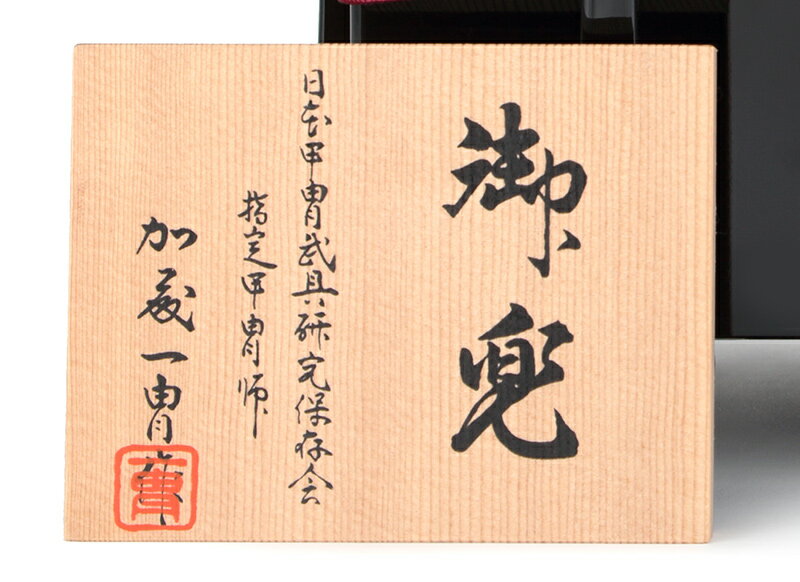 御兜
日本甲冑武具研究保存会
指定甲冑師
加藤一冑作